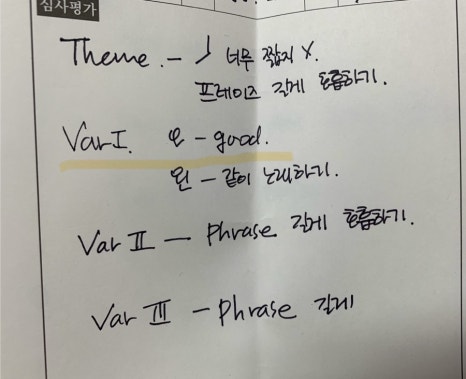 심사평가
Theme. - ♪ 너무 짧지 X.
프레이즈 길게 호흡하기.
Var I. 오 - good.
왼 - 같이 노래하기.
Var II - Phrase 길게 호흡하기.
Var III - Phrase 길게